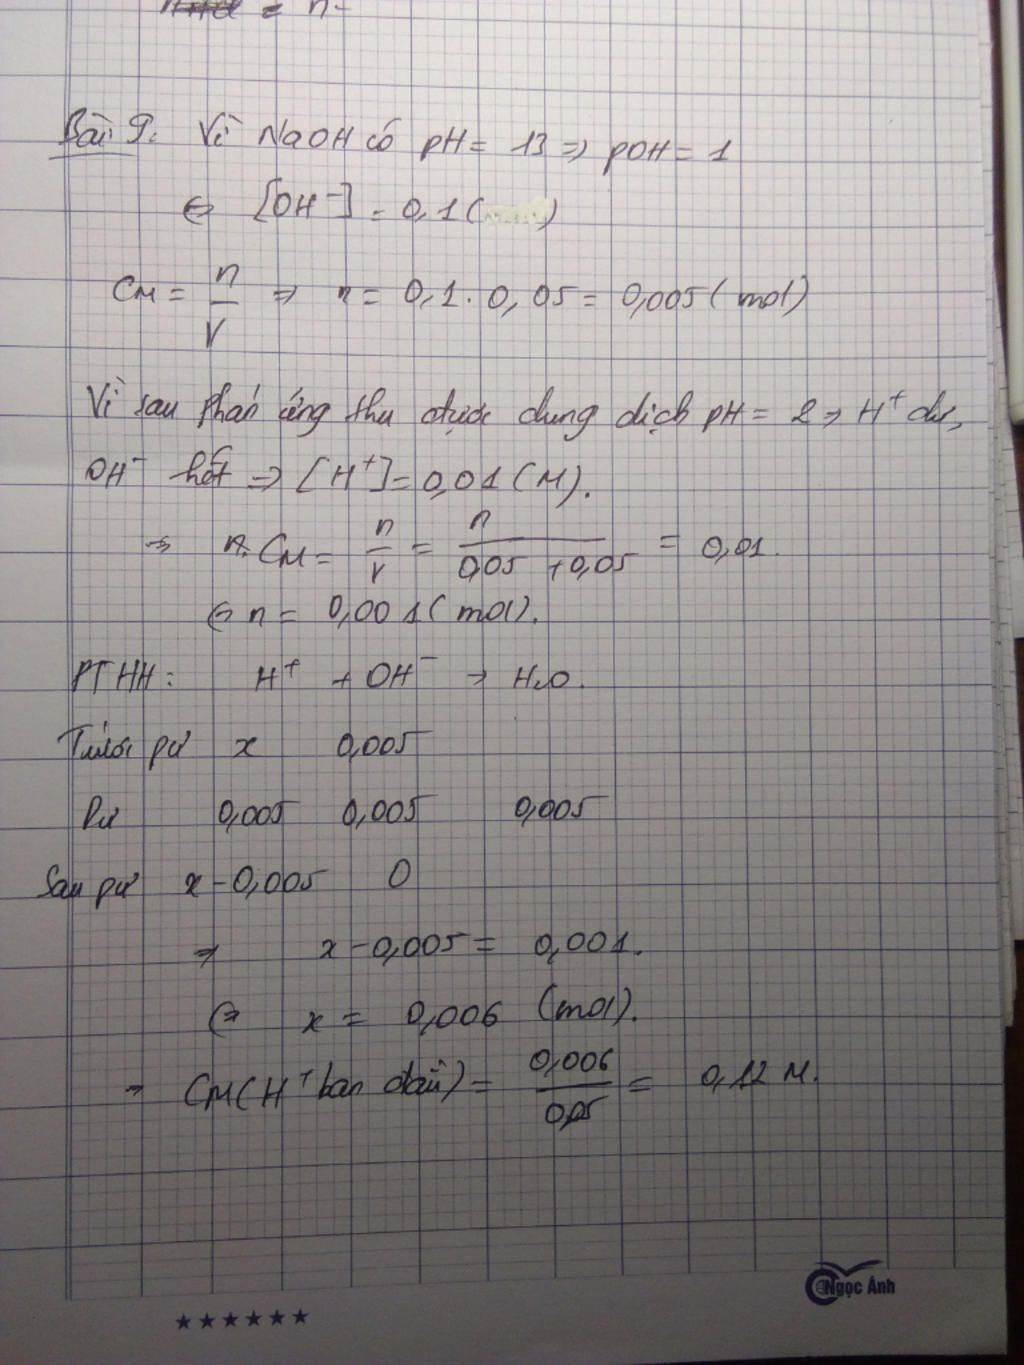 = n.
Bài 9. Vì NaOH có pH = 13 => pOH = 1
<=> [OH⁻] = 0,1 ( )
CM = n/V => n = 0,1 . 0,05 = 0,005 ( mol )
Vì sau phản ứng thu được dung dịch pH = 2 => H⁺ dư,
OH⁻ hết => [H⁺] = 0,01 (M).
=> CM = n/V = n/(0,05 + 0,05) = 0,01.
<=> n = 0,001 ( mol ).
PTHH : H⁺ + OH⁻ → H₂O.
Trước pư x 0,005
Pư 0,005 0,005 0,005
Sau pư x - 0,005 0
=> x - 0,005 = 0,001.
<=> x = 0,006 (mol).
=> CM(H⁺ ban đầu) = 0,006/0,05 = 0,12 M.
Ngọc Ánh
★★★★★★